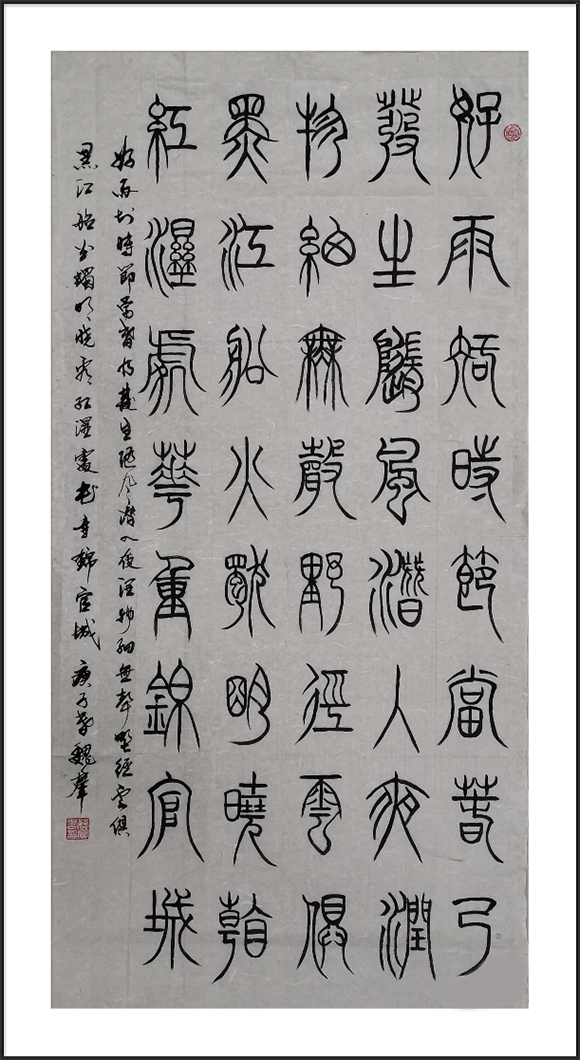 好雨知時節當春乃
發生隨風潛入夜潤
物細無聲野徑雲俱
黑江船火獨明曉看
紅濕處華重錦官城
好雨知時節當春乃發生随风潜入夜润物細無聲野徑雲俱
黑江船火獨明晓看红濕處花重錦官城 庚子春魏